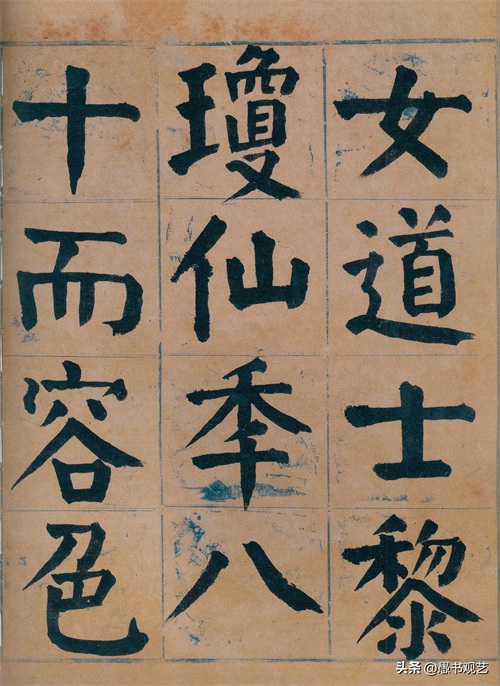 女道士黎
瓊仙秊八
十而容色
头条 @愚书观艺